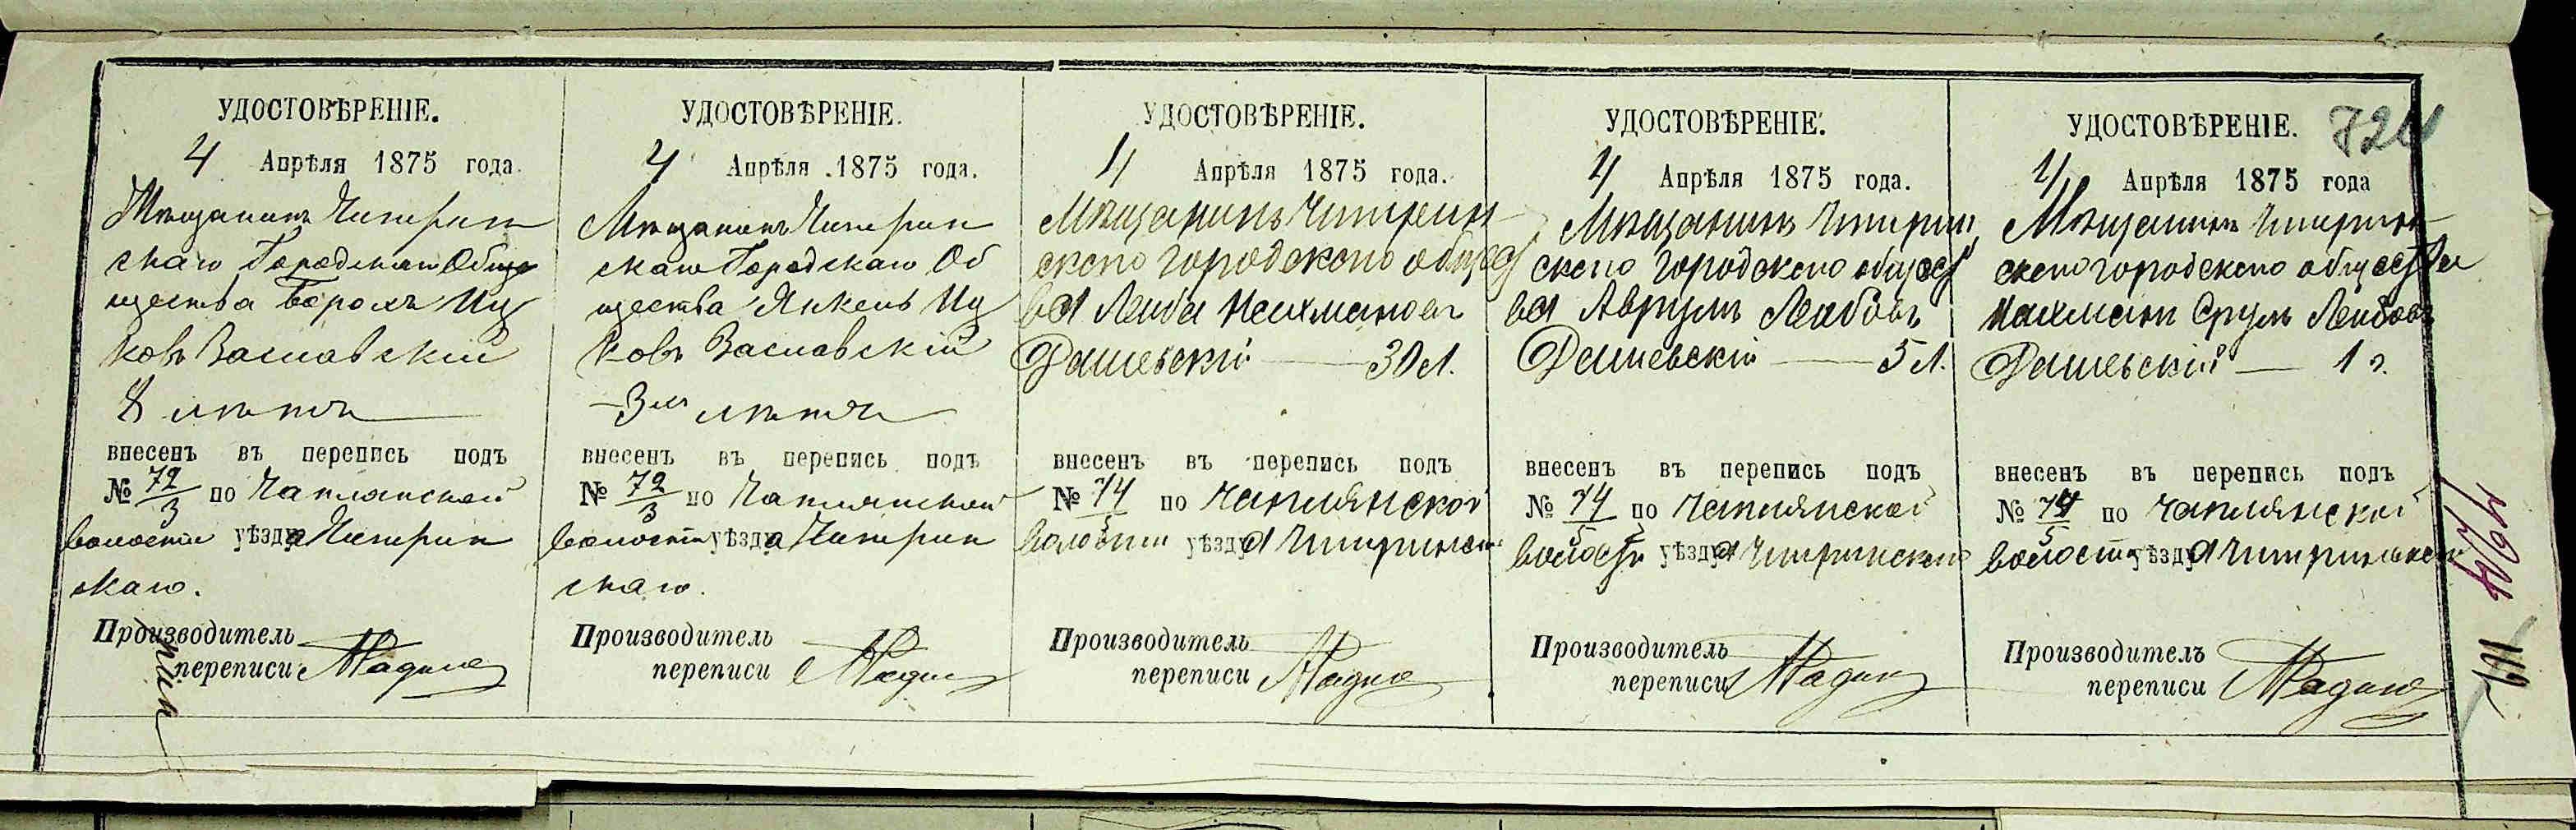 УДОСТОВѢРЕНІЕ.
4 Апрѣля 1875 года.
Мѣщанинъ Чигирин
скаго Городскаго Обще
щества Борохъ Иц
ковъ Заславскій
8 лѣтъ
внесенъ въ перепись подъ
№ 72/3 по Чаплянской
волости уѣзда Чигирин
скаго.
Производитель
переписи
УДОСТОВѢРЕНІЕ.
4 Апрѣля 1875 года.
Мѣщанинъ Чигирин
скаго Городскаго Об
щества Янкель Иц
ковъ Заславскій
3 лѣтъ
внесенъ въ перепись подъ
№ 72/3 по Чаплянской
волости уѣзда Чигирин
скаго.
Производитель
переписи
УДОСТОВѢРЕНІЕ.
4 Апрѣля 1875 года.
Мѣщанинъ Чигирин
скаго городскаго общест
ва Лейба Нахмановъ
Дашевскій — 30 л.
внесенъ въ перепись подъ
№ 74/5 по Чаплянской
волости уѣзда Чигиринск
Производитель
переписи
УДОСТОВѢРЕНІЕ.
4 Апрѣля 1875 года.
Мѣщанинъ Чигирин
скаго городскаго общест
ва Аврумъ Лейбовъ
Дашевскій — 5 л.
внесенъ въ перепись подъ
№ 74/5 по Чаплянской
волости уѣзда Чигиринскаго
Производитель
переписи
724
УДОСТОВѢРЕНІЕ.
4 Апрѣля 1875 года
Мѣщанинъ Чигирин
скаго городскаго общества
Нахман Сруль Лейбовъ
Дашевскій — 1 г.
внесенъ въ перепись подъ
№ 74/5 по Чаплянской
волости уѣзда Чигиринскаго
Производитель
переписи